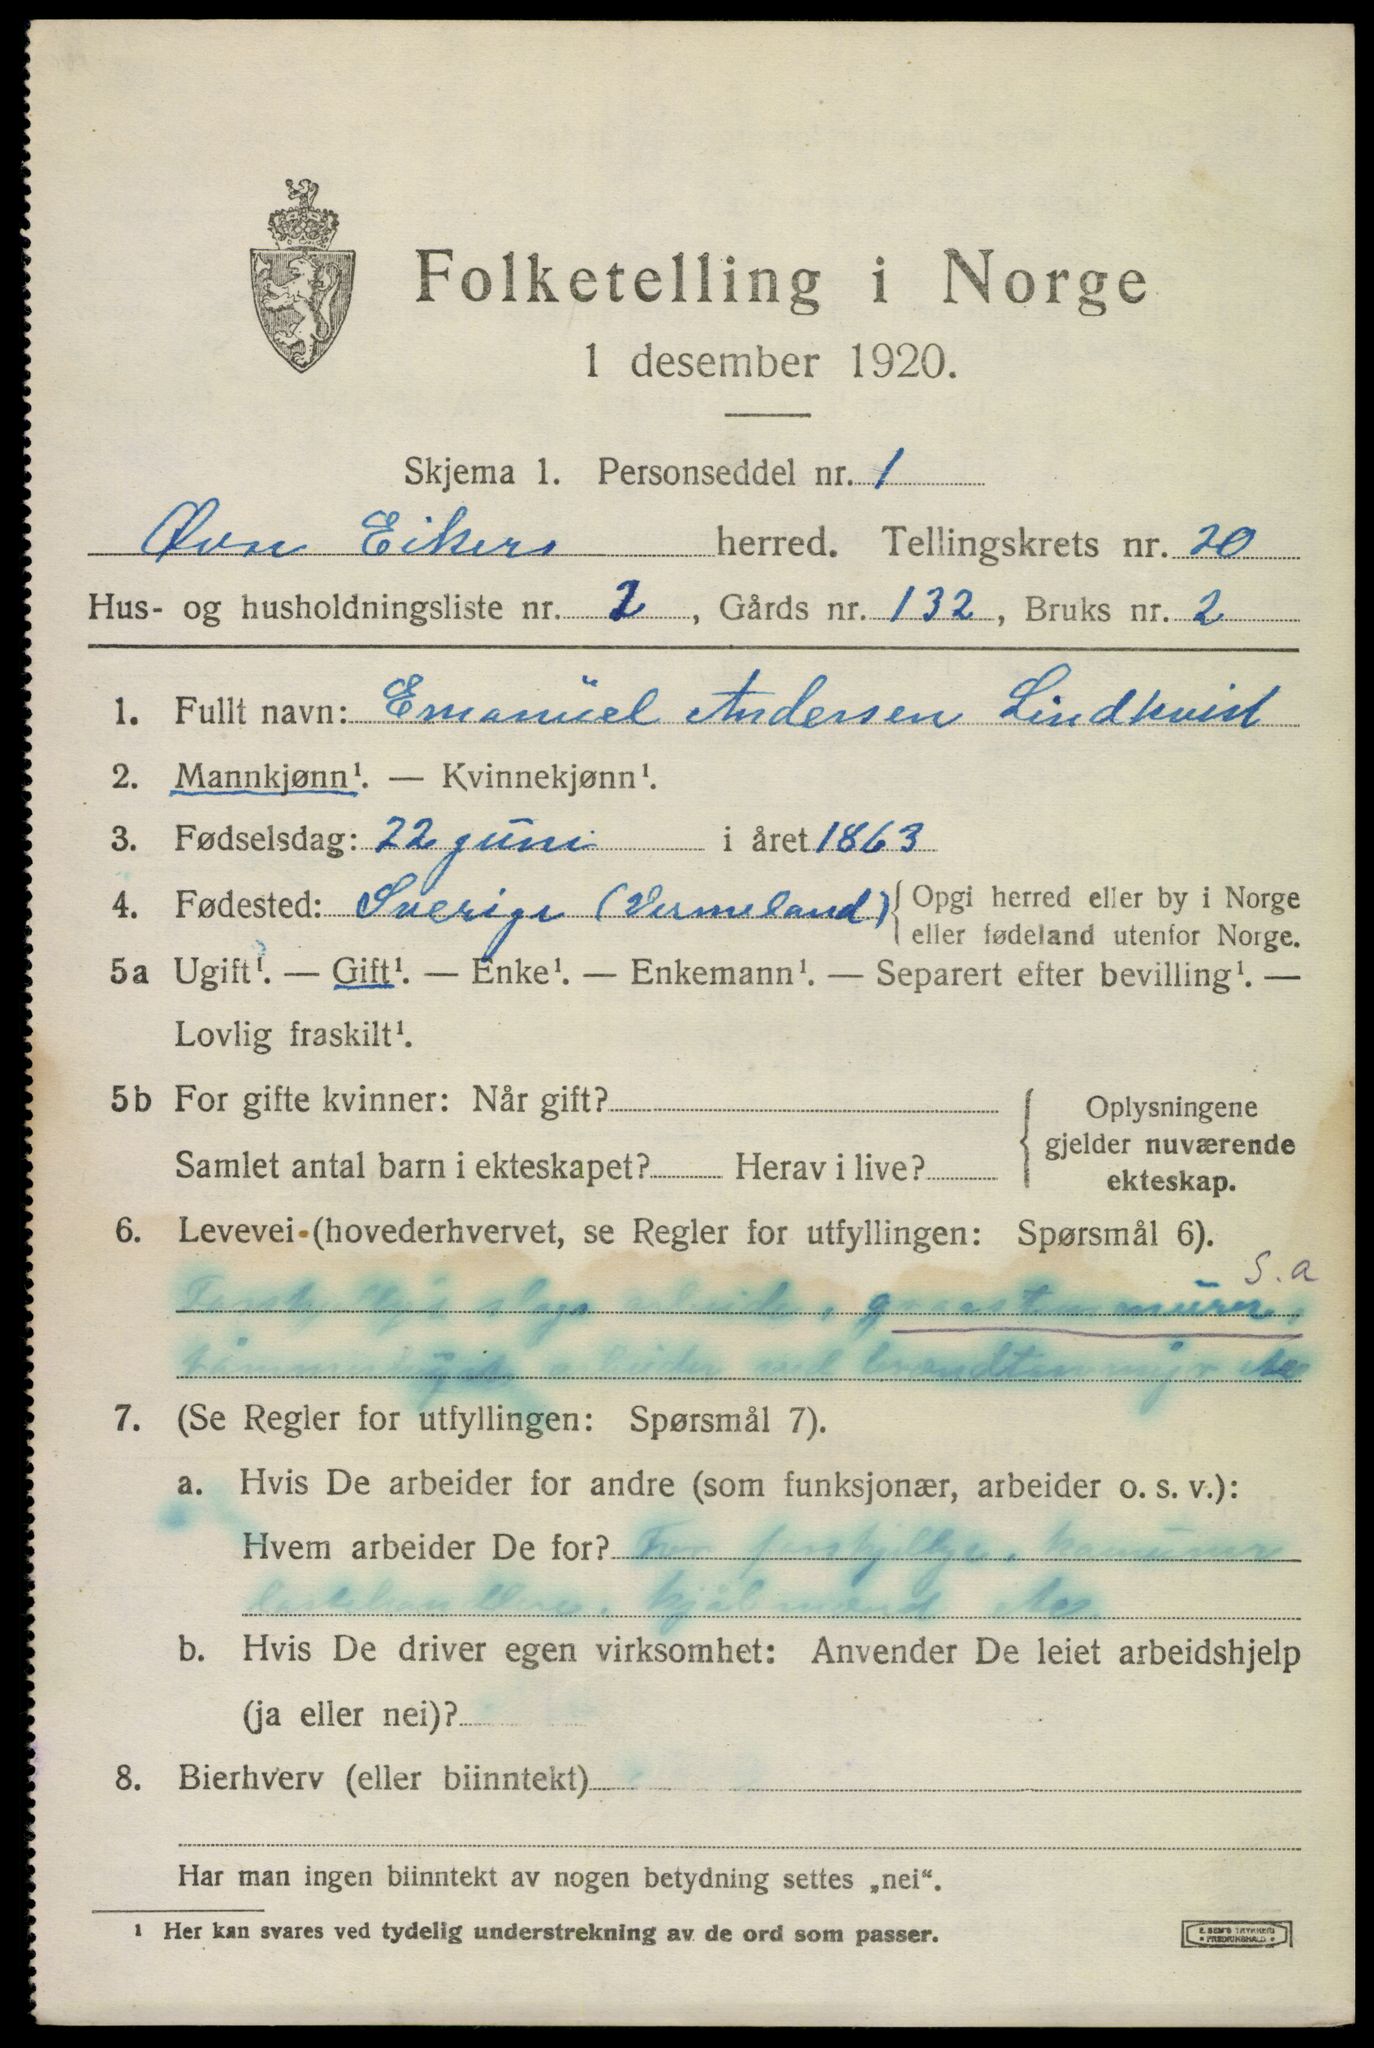 Folketelling i Norge
1 desember 1920.
Skjema 1. Personseddel nr. 1
Øvre Eikers herred. Tellingskrets nr. 20
Hus- og husholdningsliste nr. 2, Gårds nr. 132, Bruks nr. 2
1. Fullt navn: Emanuel Andersen Lindkvist
2. Mannkjønn¹. — Kvinnekjønn¹.
3. Fødselsdag: 22 juni i året 1863
4. Fødested: Sverige (Vermeland) { Opgi herred eller by i Norge
eller fødeland utenfor Norge.
5a Ugift¹. — Gift¹. — Enke¹. — Enkemann¹. — Separert efter bevilling¹. —
Lovlig fraskilt¹.
5b For gifte kvinner: Når gift? { Oplysningene
gjelder nuværende
Samlet antal barn i ekteskapet? Herav i live?
ekteskap.
6. Levevei (hovederhvervet, se Regler for utfyllingen: Spørsmål 6).
S.a
slags arbeide,
arbeider ved
7. (Se Regler for utfyllingen: Spørsmål 7).
a. Hvis De arbeider for andre (som funksjonær, arbeider o. s. v.):
Hvem arbeider De for? For forskjellige,
b. Hvis De driver egen virksomhet: Anvender De leiet arbeidshjelp
(ja eller nei)?
8. Bierhverv (eller biinntekt)
Har man ingen biinntekt av nogen betydning settes „nei“.
¹ Her kan svares ved tydelig understrekning av de ord som passer.
E. SEM'S TRYKKERI
• FREDRIKSHALD •